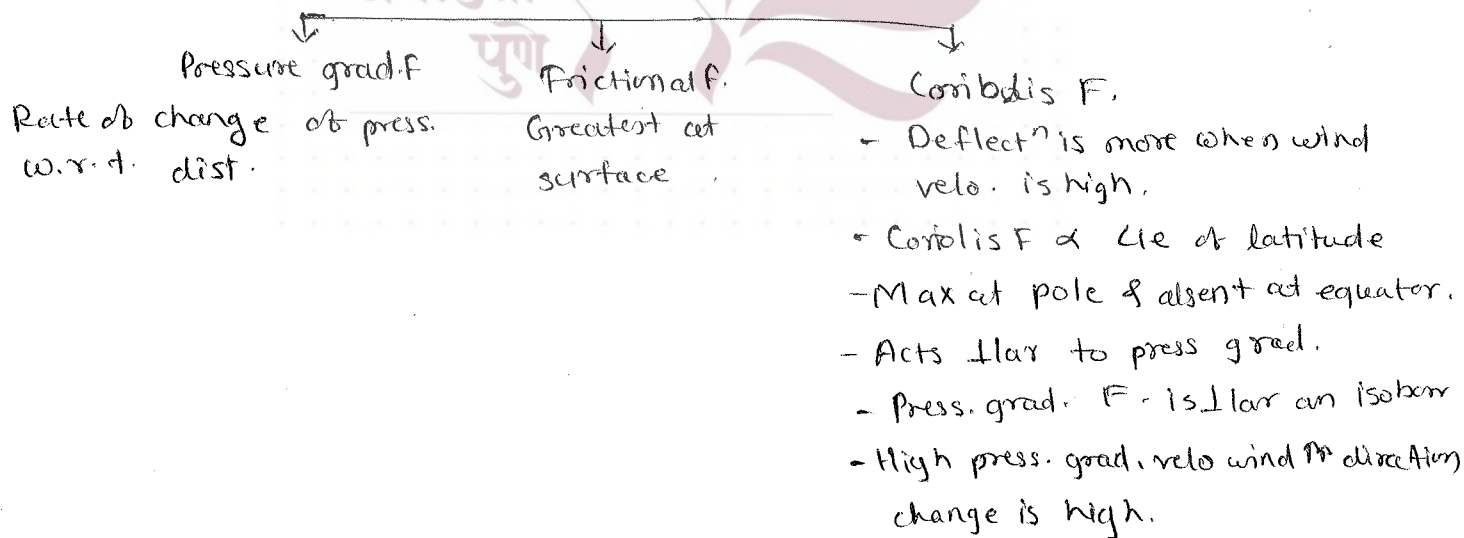 पुणे
Pressure grad.F
Rate of change of press.
w.r.t. dist.
Frictional f.
Greatest at
surface.
Coriolis F.
- Deflectⁿ is more when wind
velo. is high.
- Coriolis F α Lie of latitude
- Max at pole & absent at equator.
- Acts ⊥lar to press grad.
- Press. grad. F. is ⊥lar an isobar
- High press. grad. velo wind ↑ direction
change is high.